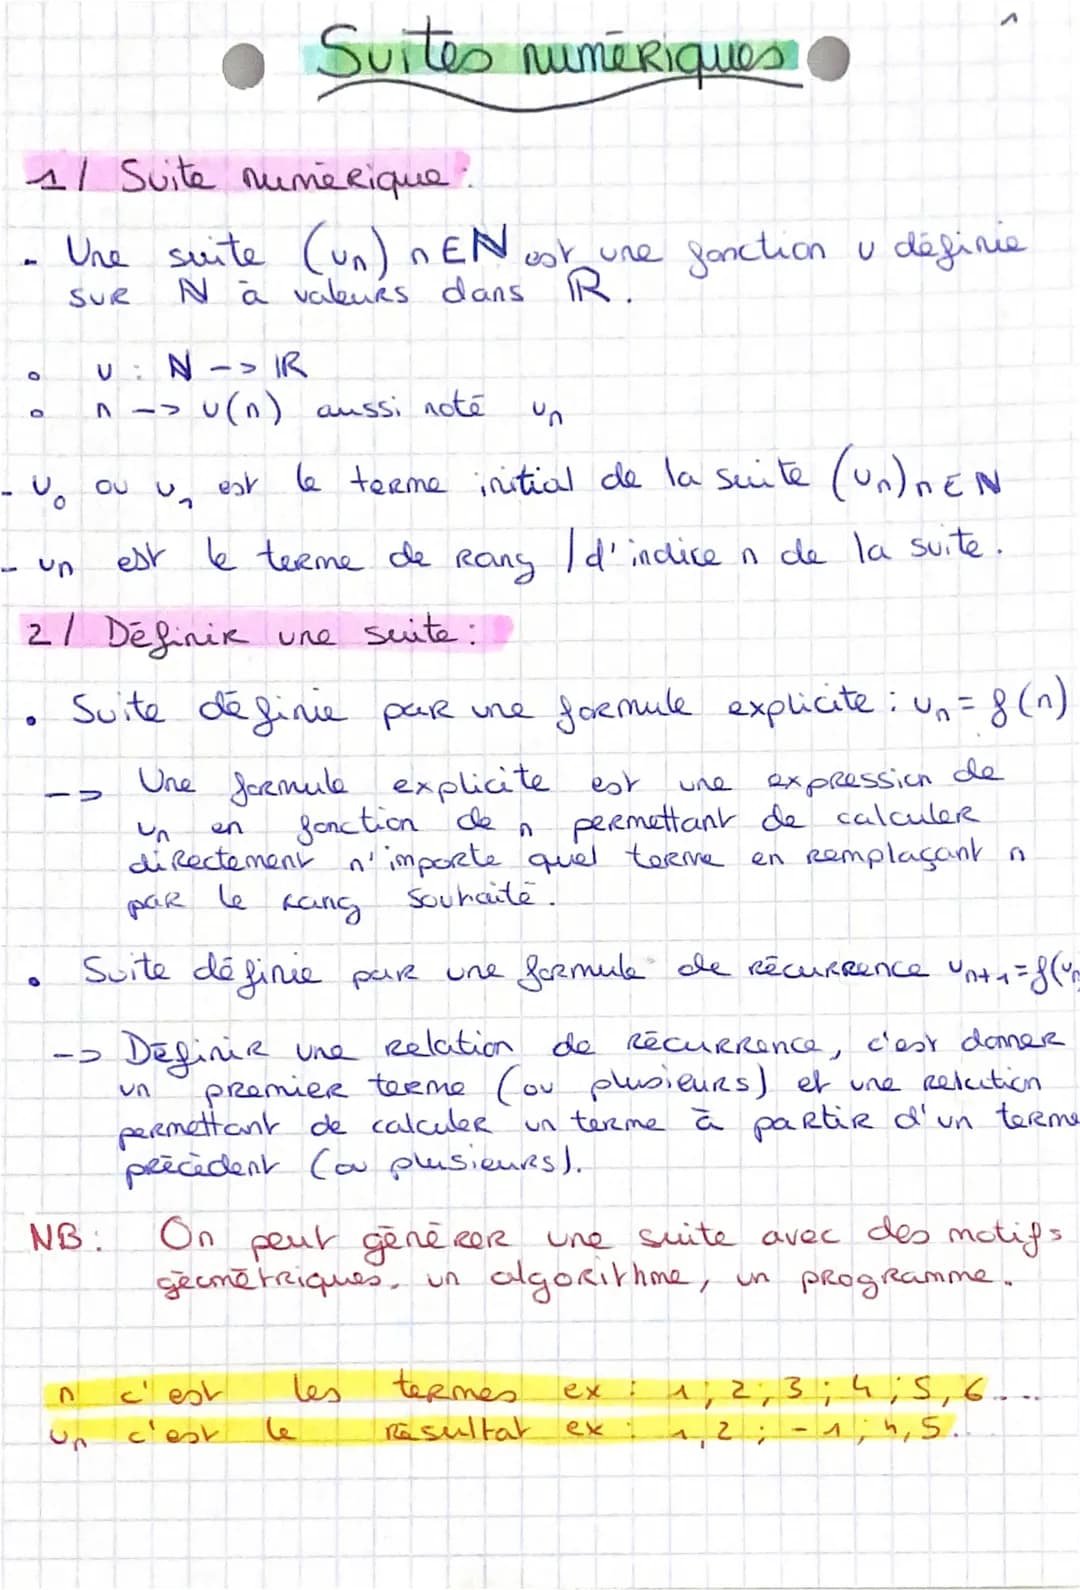 1
Suites numériques
1/ Suite numérique :
- Une suite (un) n ∈ N est une fonction u définie
sur N à valeurs dans R.
o u : N --> R
o n --> u(n) aussi noté un
- u0 ou u1 est le terme initial de la suite (un) n ∈ N
- un est le terme de rang / d'indice n de la suite.
2/ Définir une suite :
• Suite définie par une formule explicite : un = f(n)
--> Une formule explicite est une expression de
un en fonction de n permettant de calculer
directement n'importe quel terme en remplaçant n
par le rang souhaité.
• Suite définie par une formule de récurrence un+1 = f(un
--> Définir une relation de récurrence, c'est donner
un premier terme (ou plusieurs) et une relation
permettant de calculer un terme à partir d'un terme
précèdent (ou plusieurs).
NB : On peut générer une suite avec des motifs
géométriques, un algorithme, un programme.
n c'est les termes ex : 1 ; 2 ; 3 ; 4 ; 5, 6.....
un c'est le résultat ex : 1,2 ; -1 ; 4,5...